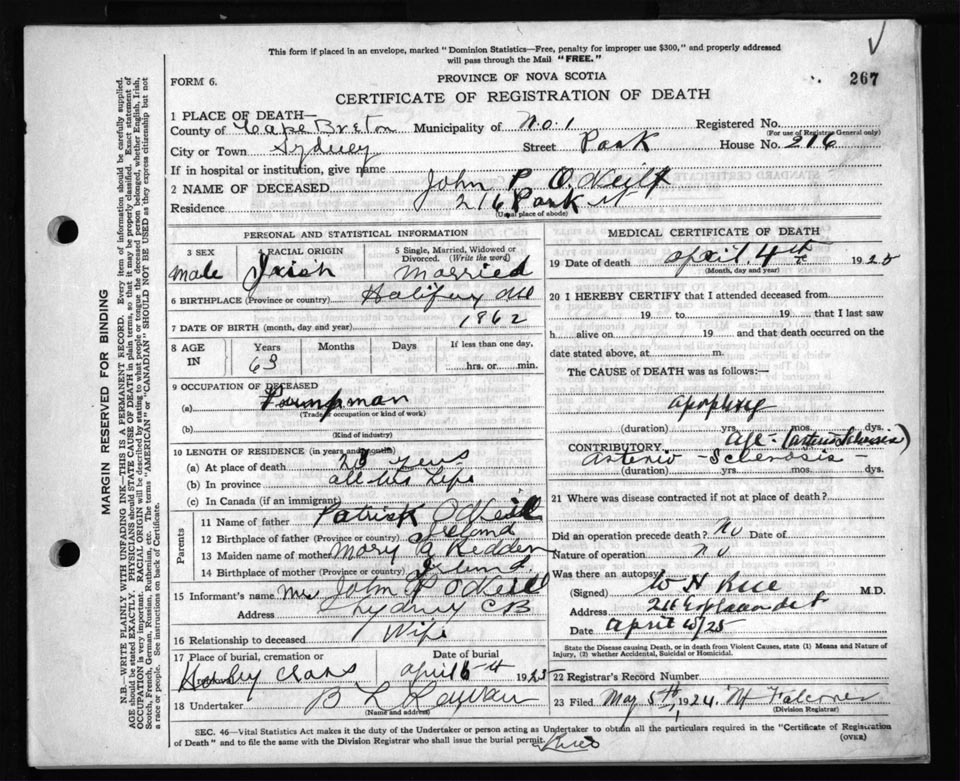 This form if placed in an envelope, marked "Dominion Statistics—Free, penalty for improper use $300," and properly addressed
will pass through the Mail "FREE."
PROVINCE OF NOVA SCOTIA
FORM 6.
267
CERTIFICATE OF REGISTRATION OF DEATH
1 PLACE OF DEATH—
County of Cape Breton Municipality of No. 1 Registered No.
(For use of Registrar General only)
City or Town Sydney Street Park House No. 216
If in hospital or institution, give name
2 NAME OF DECEASED John P O'Neill
Residence 216 Park St
(Usual place of abode)
PERSONAL AND STATISTICAL INFORMATION
3 SEX 4 RACIAL ORIGIN 5 Single, Married, Widowed or Divorced. (Write the word)
Male Irish Married
6 BIRTHPLACE (Province or country) Halifax NS
7 DATE OF BIRTH (month, day and year) 1862
8 AGE IN Years Months Days If less than one day,
63 hrs. or min.
9 OCCUPATION OF DECEASED
(a) Pumpman
(Trade, occupation or kind of work)
(b)
(Kind of industry)
10 LENGTH OF RESIDENCE (in years and months)
(a) At place of death years
(b) In province all his Life
(c) In Canada (if an immigrant)
Parents
11 Name of father Patrick O'Neill
12 Birthplace of father (Province or country) Ireland
13 Maiden name of mother Mary Redden
14 Birthplace of mother (Province or country) Ireland
15 Informant's name Mrs John P O'Neill
Address Sydney CB
16 Relationship to deceased Wife
17 Place of burial, cremation or Date of burial
Holey Cross April 1925
18 Undertaker B L
(Name and address)
MEDICAL CERTIFICATE OF DEATH
19 Date of death April 4th 1925
(Month, day and year)
20 I HEREBY CERTIFY that I attended deceased from
19 to 19 that I last saw
h alive on 19 and that death occurred on the
date stated above, at m.
The CAUSE of DEATH was as follows:—
apoplexy
(duration) yrs. mos. dys.
CONTRIBUTORY age - (arterio Sclerosis)
Arterio - Sclerosis -
(duration) yrs. mos. dys.
21 Where was disease contracted if not at place of death?
Did an operation precede death? No Date of
Nature of operation no
Was there an autopsy?
(Signed) W H Rice M.D.
Address
Date April /25
State the Disease causing Death, or in death from Violent Causes, state (1) Means and Nature of
Injury, (2) whether Accidental, Suicidal or Homicidal.
22 Registrar's Record Number
23 Filed May 5th, 1924. Falconer
(Division Registrar)
SEC. 46—Vital Statistics Act makes it the duty of the Undertaker or person acting as Undertaker to obtain all the particulars required in the "Certificate of Registration
of Death" and to file the same with the Division Registrar who shall issue the burial permit.
(OVER)
MARGIN RESERVED FOR BINDING
N.B.—WRITE PLAINLY WITH UNFADING INK—THIS IS A PERMANENT RECORD. Every item of information should be carefully supplied.
AGE should be stated EXACTLY. PHYSICIANS should STATE CAUSE OF DEATH in plain terms, so that it may be properly classified. Exact statement of
OCCUPATION is very important. RACIAL ORIGIN will be described by stating to what people or tongue the deceased person belonged, whether English, Irish,
Scotch, French, German, Russian, Ruthenian, etc. The terms "AMERICAN" or "CANADIAN" SHOULD NOT BE USED as they express citizenship but not
a race or people. See instructions on back of Certificate.